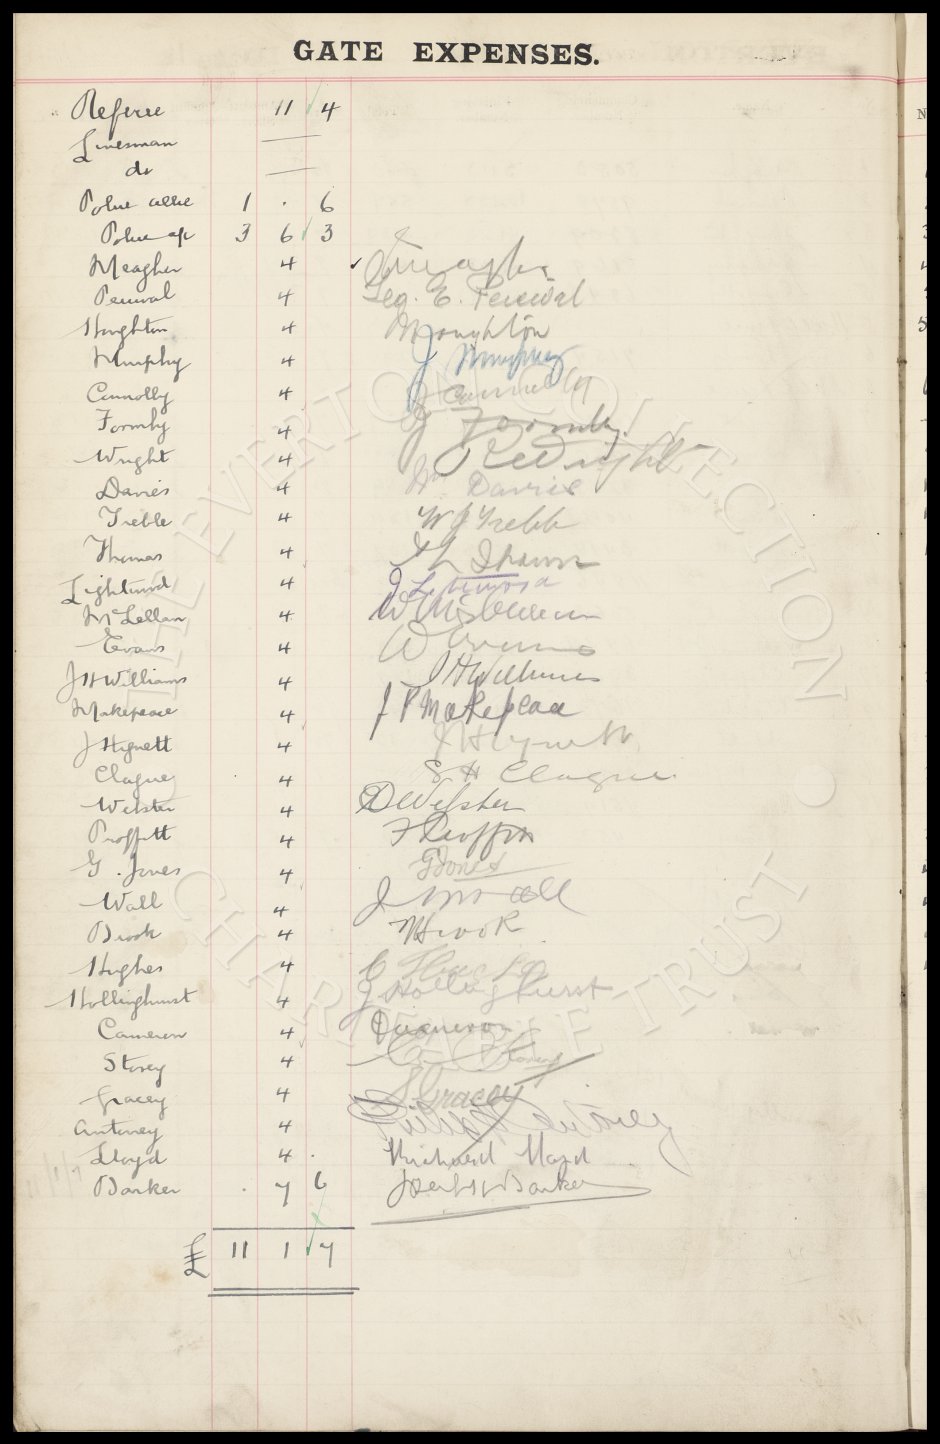 GATE EXPENSES.
Referee 11 4
Linesman —
do —
Police 1 . 6
Police 3 6 3
Meagher 4
Percival 4 Geo. E. Percival
Houghton 4 Houghton
Murphy 4 J Murphy
Connolly 4 J Connolly
Formby 4 J Formby.
Wright 4 R Wright
Davies 4 Wm Davies
Treble 4 W J Treble
Thomas 4 Thomas
Lightwood 4
McLellan 4
Evans 4 W Evans
J H Williams 4 J H Williams
Makepeace 4 J P Makepeace
J Hignett 4 J Hignett
Clague 4 S H Clague
Webster 4 D Webster
Proffitt 4 F Proffitt
G. Jones 4 G Jones
Wall 4 J Wall
Brook 4 H Brook
Hughes 4 Hughes
Hollinghurst 4 J Hollinghurst
Cameron 4 D Cameron
Storey 4 Storey
Gracey 4 S Gracey
Antoney 4 Antoney
Lloyd 4 . Richard Lloyd
Barker . 7 6 Barker
£ 11 1 7
THE EVERTON COLLECTION CHARITABLE TRUST